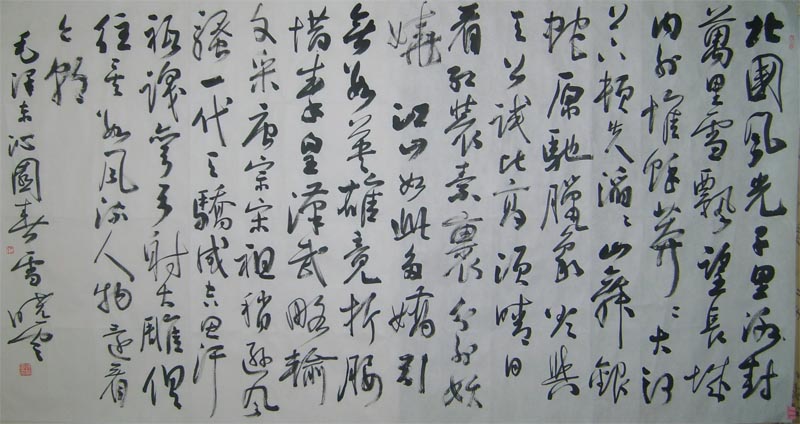 北國風光千里冰封
萬里雪飄望長城
内外惟餘莽〻大河
上下頓失滔〻山舞銀
蛇原馳臘象欲與
天公試比高須晴日
看紅裝素裹分外妖
嬈 江山如此多嬌引
無數英雄競折腰
惜秦皇漢武略輸
文采唐宗宋祖稍遜風
騷一代天驕成吉思汗
祇識彎弓射大雕俱
往矣數風流人物還看
今朝
毛澤東沁園春雪 曉雲